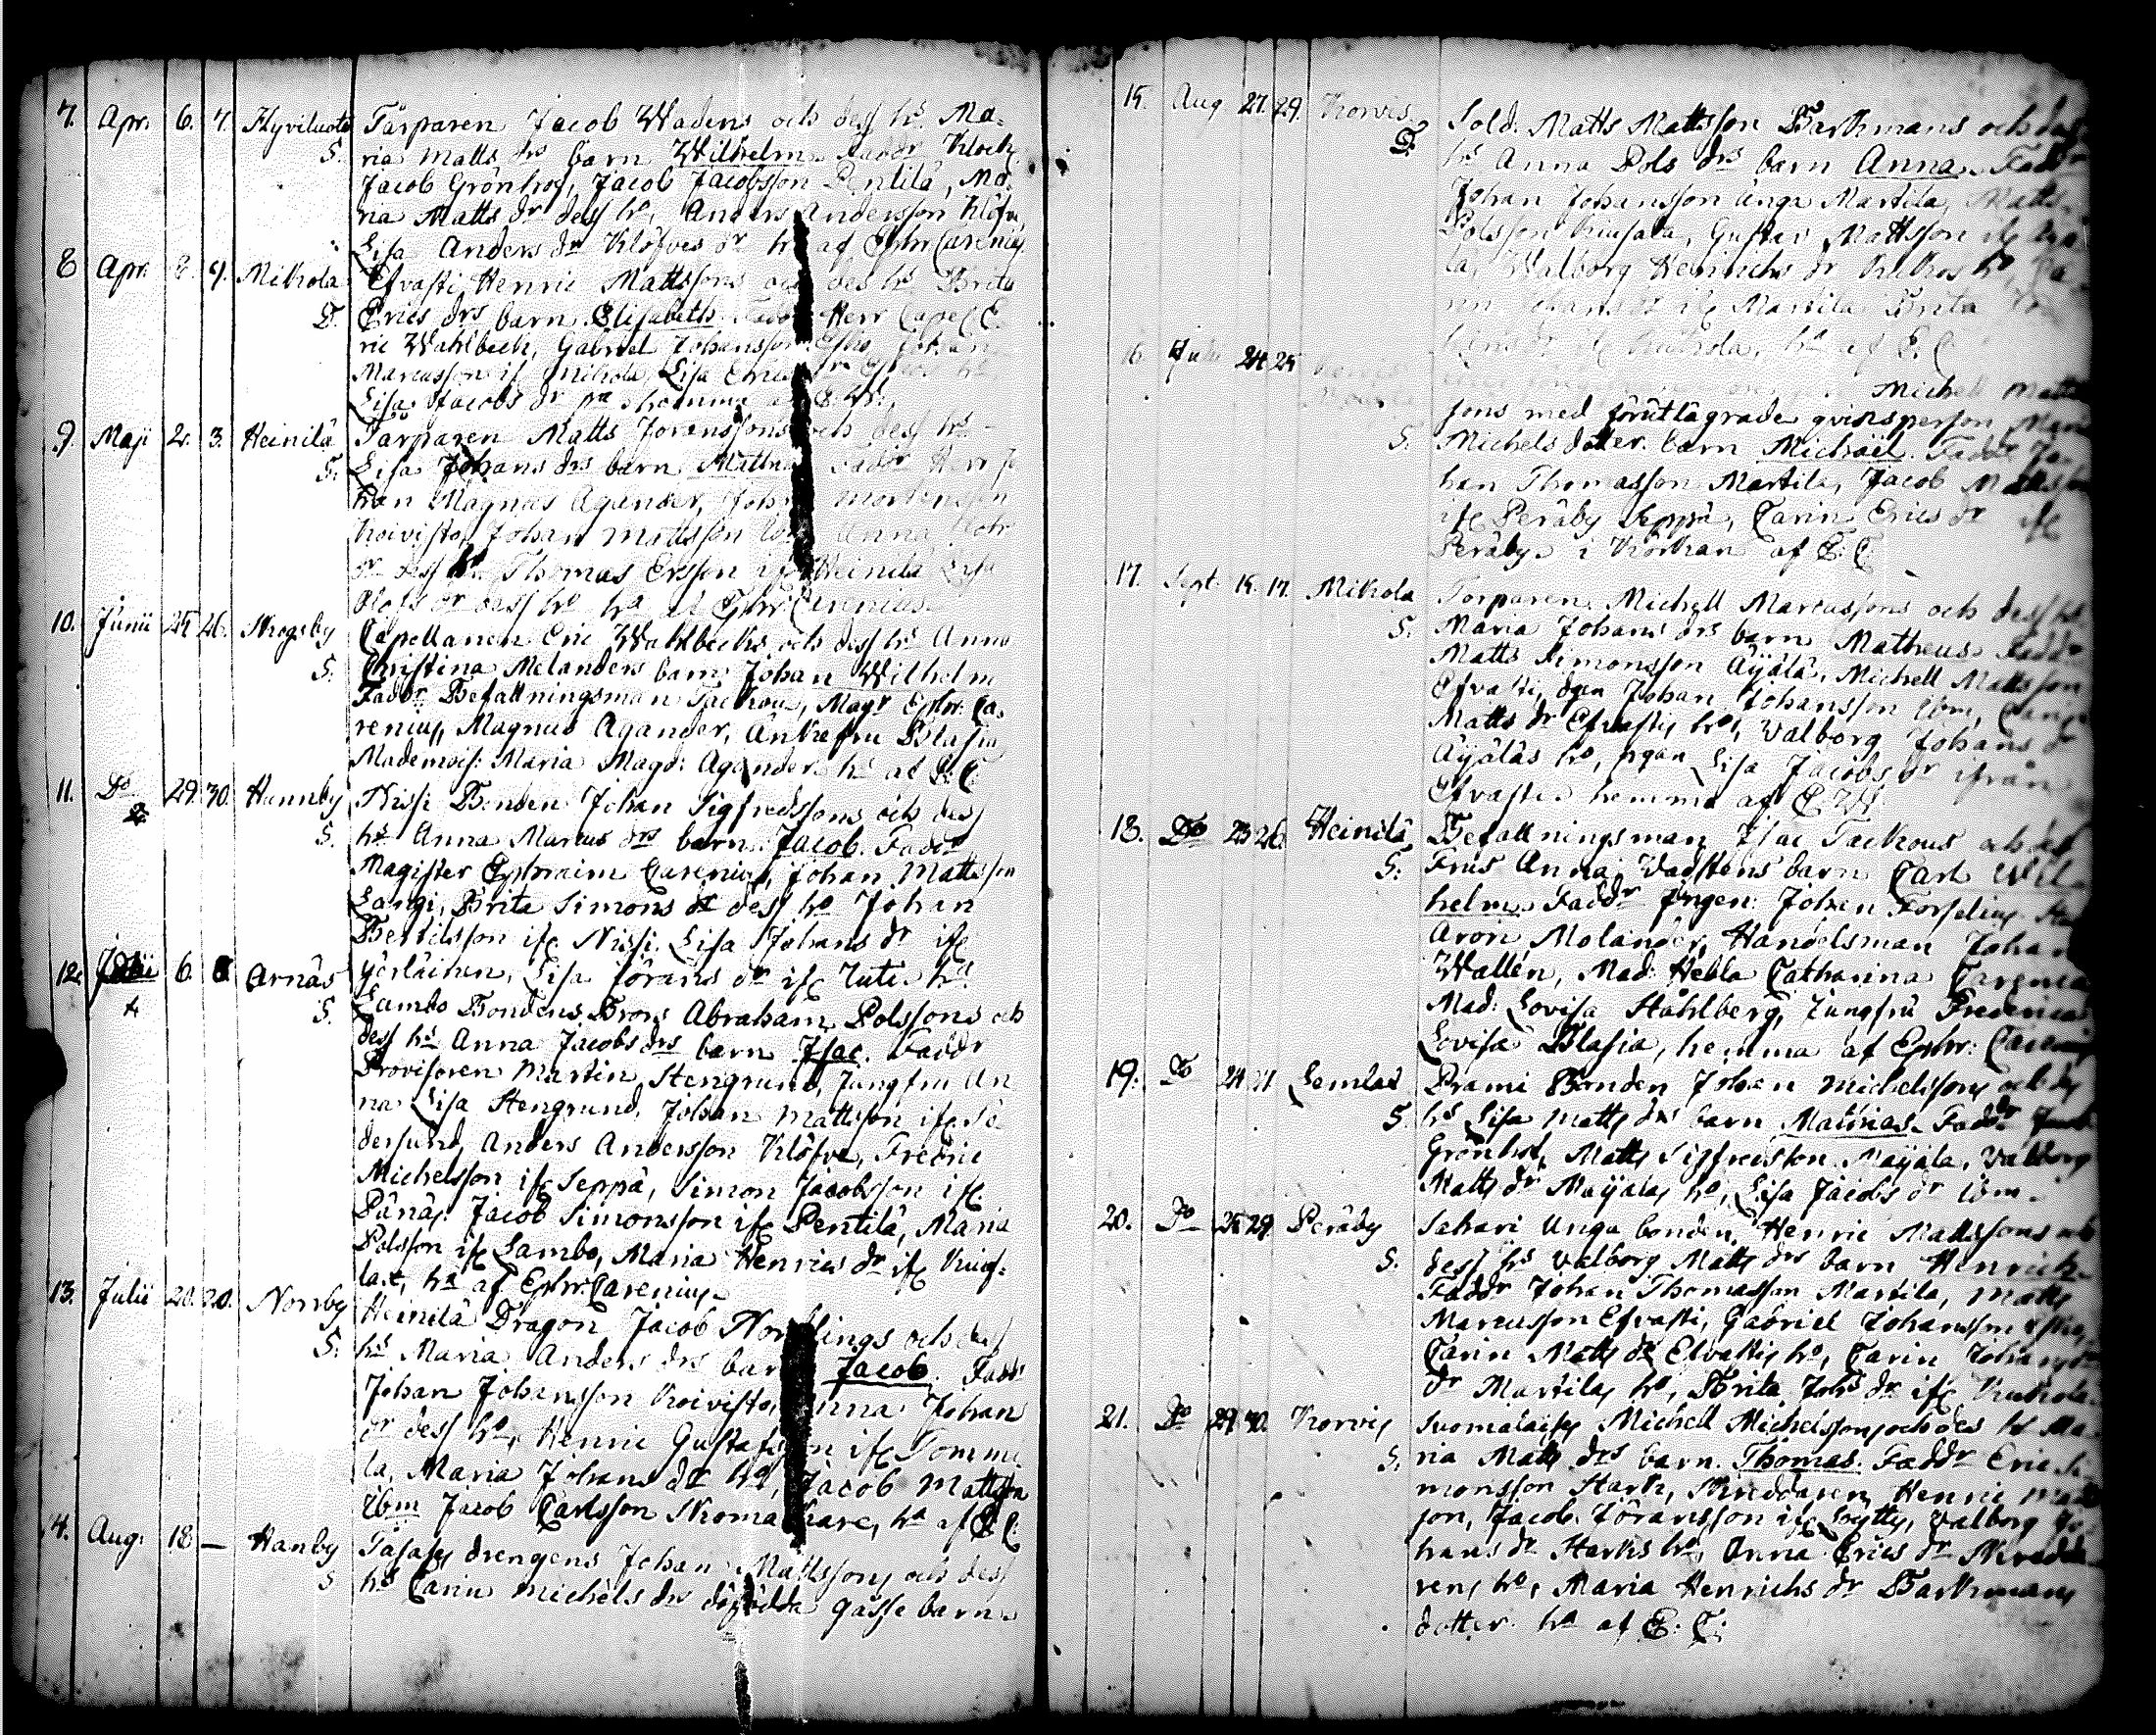 7. Apr. 6. 7. Hyviluoto Tårparen Jacob Wadens och dess hs Ma=
S. ria Matts drs barn Wilhelm. Faddr Klock
Jacob Grönhos, Jacob Jacobsson Pentilä, Ma=
ria Matts dr dess ho, Anders Andersson Klöfve
Lisa Anders dr Klöfves dr ha af Ephr Carenius
8 Apr. 8. 9. Mikola Efvasti Henric Mattssons och des hs Brita
D. Erics drs barn Elisabeth. Herr Capel. E=
ric Wahlbeck, Gabriel Johansson Johan
Marcusson if Mikola, Lisa Erics
Lisa Jacobs dr
9. Maji 2. 3. Heinilä Tårparen Matts Joranssons och dess hs
S. Lisa Johans drs barn Faddr Herr Jo
han Magnus Agander, Joh Mortensson
Koivisto, Johan Mattsson Anna Joh
dr dess ho. Thomas Ersson if Heinilä Lisa
Olofs dr dess ho ha af Ephr Carenius
10. Junii 25 26. Skogsby Capellanen Eric Wahlbecks och dess hs Anna
S. Christina Melanders barn Johan Wilhelm
Faddr Befallningsman Tackou, Magr Ephr: Ca=
renius, Magnus Agander, Ankefru Blasia,
Mademois: Maria Magd: Agander ha af E: C:
11. Do 29. 30. Hannby Nissi Bonden Johan Sigfredssons och dess
S. hs Anna Marcus drs barn Jacob. Faddr
Magister Ephraim Carenius, Johan Mattsson
Langi, Brita Simons dr dess ho Johan
Bertilsson if Nissi. Lisa Johans dr if
12. 6. 8 Arnäs Yörläinen, Lisa Jörans dr if Tuti ha
S. Lambo Bondens Brors Abraham Polssons och
dess hs Anna Jacobs drs barn Isac. Faddr
Provisoren Martin Stengrund, Jungfru An
na Lisa Stengrund, Johan Mattsson if Sö
dersund, Anders Andersson Klöfve, Fredric
Michelsson if Seppä, Simon Jacobsson if
Pänäs. Jacob Simonsson if Pentilä, Maria
Polsson if Lambo, Maria Henrics dr if King=
lax, ha af Ephr Carenius
13. Julii 20. 20. Norrby Heinilä Dragon Jacob Nordlings och dess
S. hs Maria Anders drs barn Jacob. Faddr
Johan Johansson Koivisto, Anna Johan
dr dess ho, Henric Gustafsson if Tomme
la, Maria Johans dr ho, Jacob Mattsson
ibm Jacob Carlsson Skomakare, ha af E: C:
14. Aug. 18 — Hanby Tasass drengens Johan Mattssons och dess
S hs Carin Michels drs dödfödda gosse barn.
15. Aug 27. 29. Korvis Sold. Matts Mattsson Barkmans och dess
D. hs Anna Pols drs barn Anna. Faddr
Johan Johansson änga Martila, Matts
Polsson Gustav Mattsson
la, Walborg Heinrichs dr ho, Ca
rin Johans dr if Martila Brita
dr if Kukola, ha af E. C
16. 24 25 Michell Matts
sons med förutlägrade qvinsperson Maria
S. Michels dotter. barn Michael. Faddr Jo
han Thomasson Martila, Jacob Mattsson
if Peräby Seppä, Carin Erics dr if
Peräby. i Körkan af E. C.
17. Sept 15. 17. Mikola Torparen Michell Marcussons och dess hs
S. Maria Johans drs barn Matheus. Faddr
Matts Simonsson Äijälä, Michell Mattsson
Efvasti, dgen Johan Johansson ibm, Carin
Matts dr Efvastis ho, Valborg Johans dr
Äijäläs ho, pgan Lisa Jacobs dr ifrån
Efvastis hemma af E. W.
18. Do 23 26. Heinilä Befallningsman Isac Tackous och dess
S: Frus Anna Vadstens barn Carl Wil=
helm. Faddr Jungen: Johan Forselius
Aron Molander, Handelsman Johan
Wallen, Mad: Hebla Catharina Carenia
Mad: Lovisa Ståhlberg, Jungfru Frederica
Lovisa Blasia, hemma af Ephr: Carenius
19. Do 24 27 Lemlax Prami Bonden Johan Michelssons och des
S. hs Lisa Matts drs barn Mathias. Faddr Jacob
Grönhos, Matts Sigfredsson Maijala, Valborg
Matts dr Maijalas ho, Lisa Jacobs dr ibm.
20. Do 25 29. Peräby Sahari Unga bonden Henric Mattssons och
S. dess hs Valborg Matts drs barn Henrich.
Faddr Johan Thomasson Martila, Matts
Marcusson Efvasti, Gabriel Johansson
Carin Matts dr Efvastis ho, Carin Johans
dr Martilas ho, Brita Johs dr if Kukola.
21. Do 29. 30. Korvis Suomalaiss Michell Michelssons och des hs Ma=
S. ria Matts drs barn. Thomas. Faddr Eric Si
monsson Stark, Skreddaren Henric Matts
son, Jacob Jöransson if Lytty, Valborg Jo=
hans dr Starks ho, Anna Erics dr Skredda
rens ho, Maria Henrichs dr Barkmans
dotter. ha af E: C: